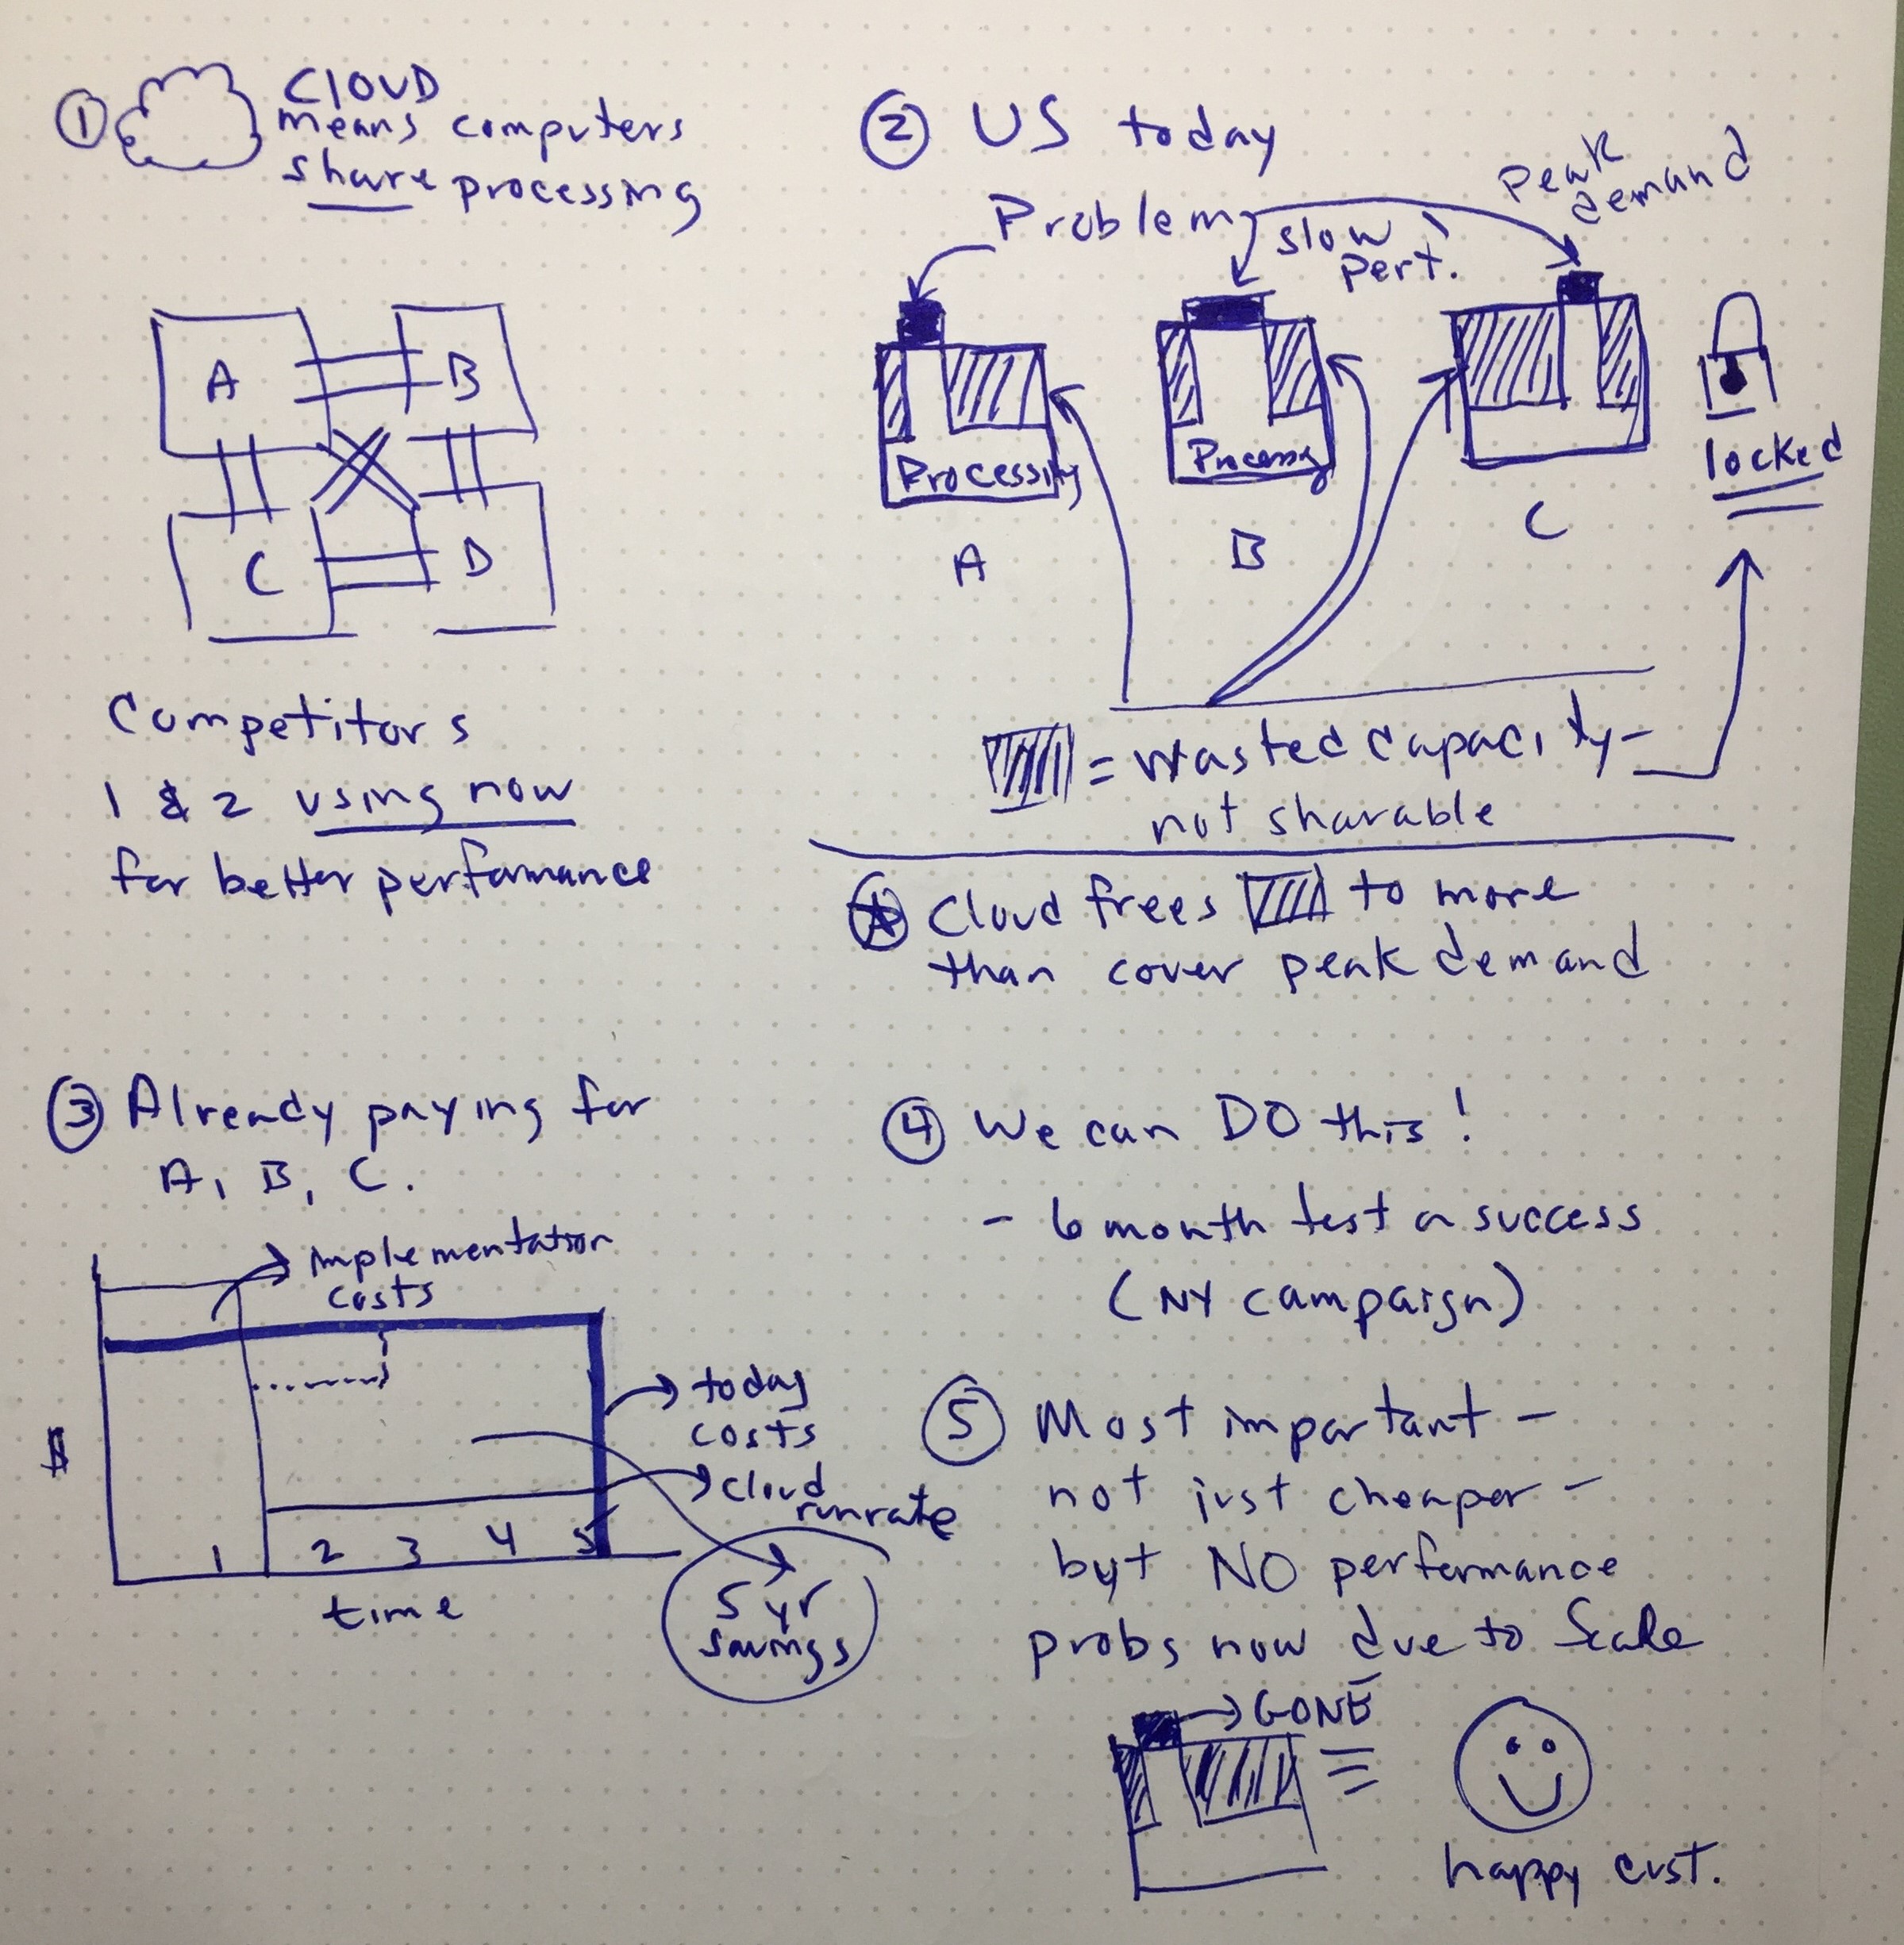 ① CLOUD
means computers
share processing
A B
C D
Competitors
1 & 2 using now
for better performance
② US today
Problem
slow
perf.
Peak
demand
Processing
Processing
A B C
locked
= wasted capacity -
not sharable
Cloud frees to more
than cover peak demand
③ Already paying for
A, B, C.
implementation
costs
$
today
costs
cloud
runrate
1 2 3 4 5
time
5 yr
savings
④ We can DO this!
- 6 month test a success
(NY campaign)
⑤ Most important -
not just cheaper -
but NO performance
probs now due to Scale
GONE
=
happy cust.